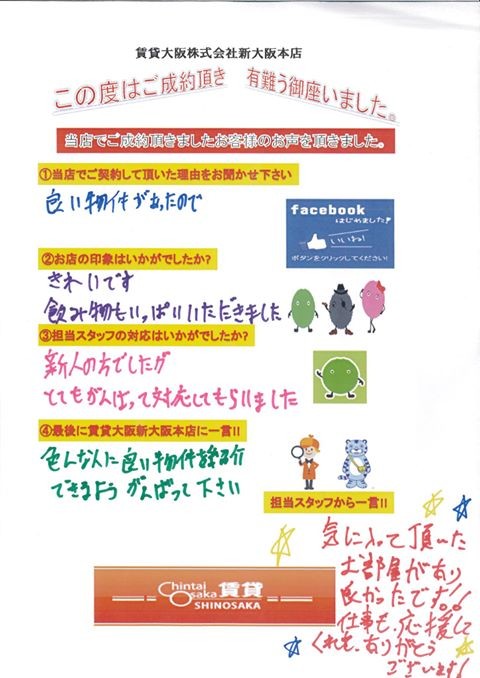 賃貸大阪株式会社新大阪本店
この度はご成約頂き 有難う御座いました。
当店でご成約頂きましたお客様のお声を頂きました。
①当店でご契約して頂いた理由をお聞かせ下さい
良い物件があったので
facebook
はじめました!
いいね!
ボタンをクリックしてください!
②お店の印象はいかがでしたか?
きれいです
飲み物もいっぱいいただきました
③担当スタッフの対応はいかがでしたか?
新人の方でしたが
とてもがんばって対応してもらいました
④最後に賃貸大阪新大阪本店に一言!!
色んな人に良い物件を紹介
できるよう がんばって下さい
担当スタッフから一言!!
気に入って頂いた
お部屋が有り
良かったです!!
仕事も、応援して
くれて、ありがとう
ございます!
Chintai Osaka 賃貸
SHINOSAKA